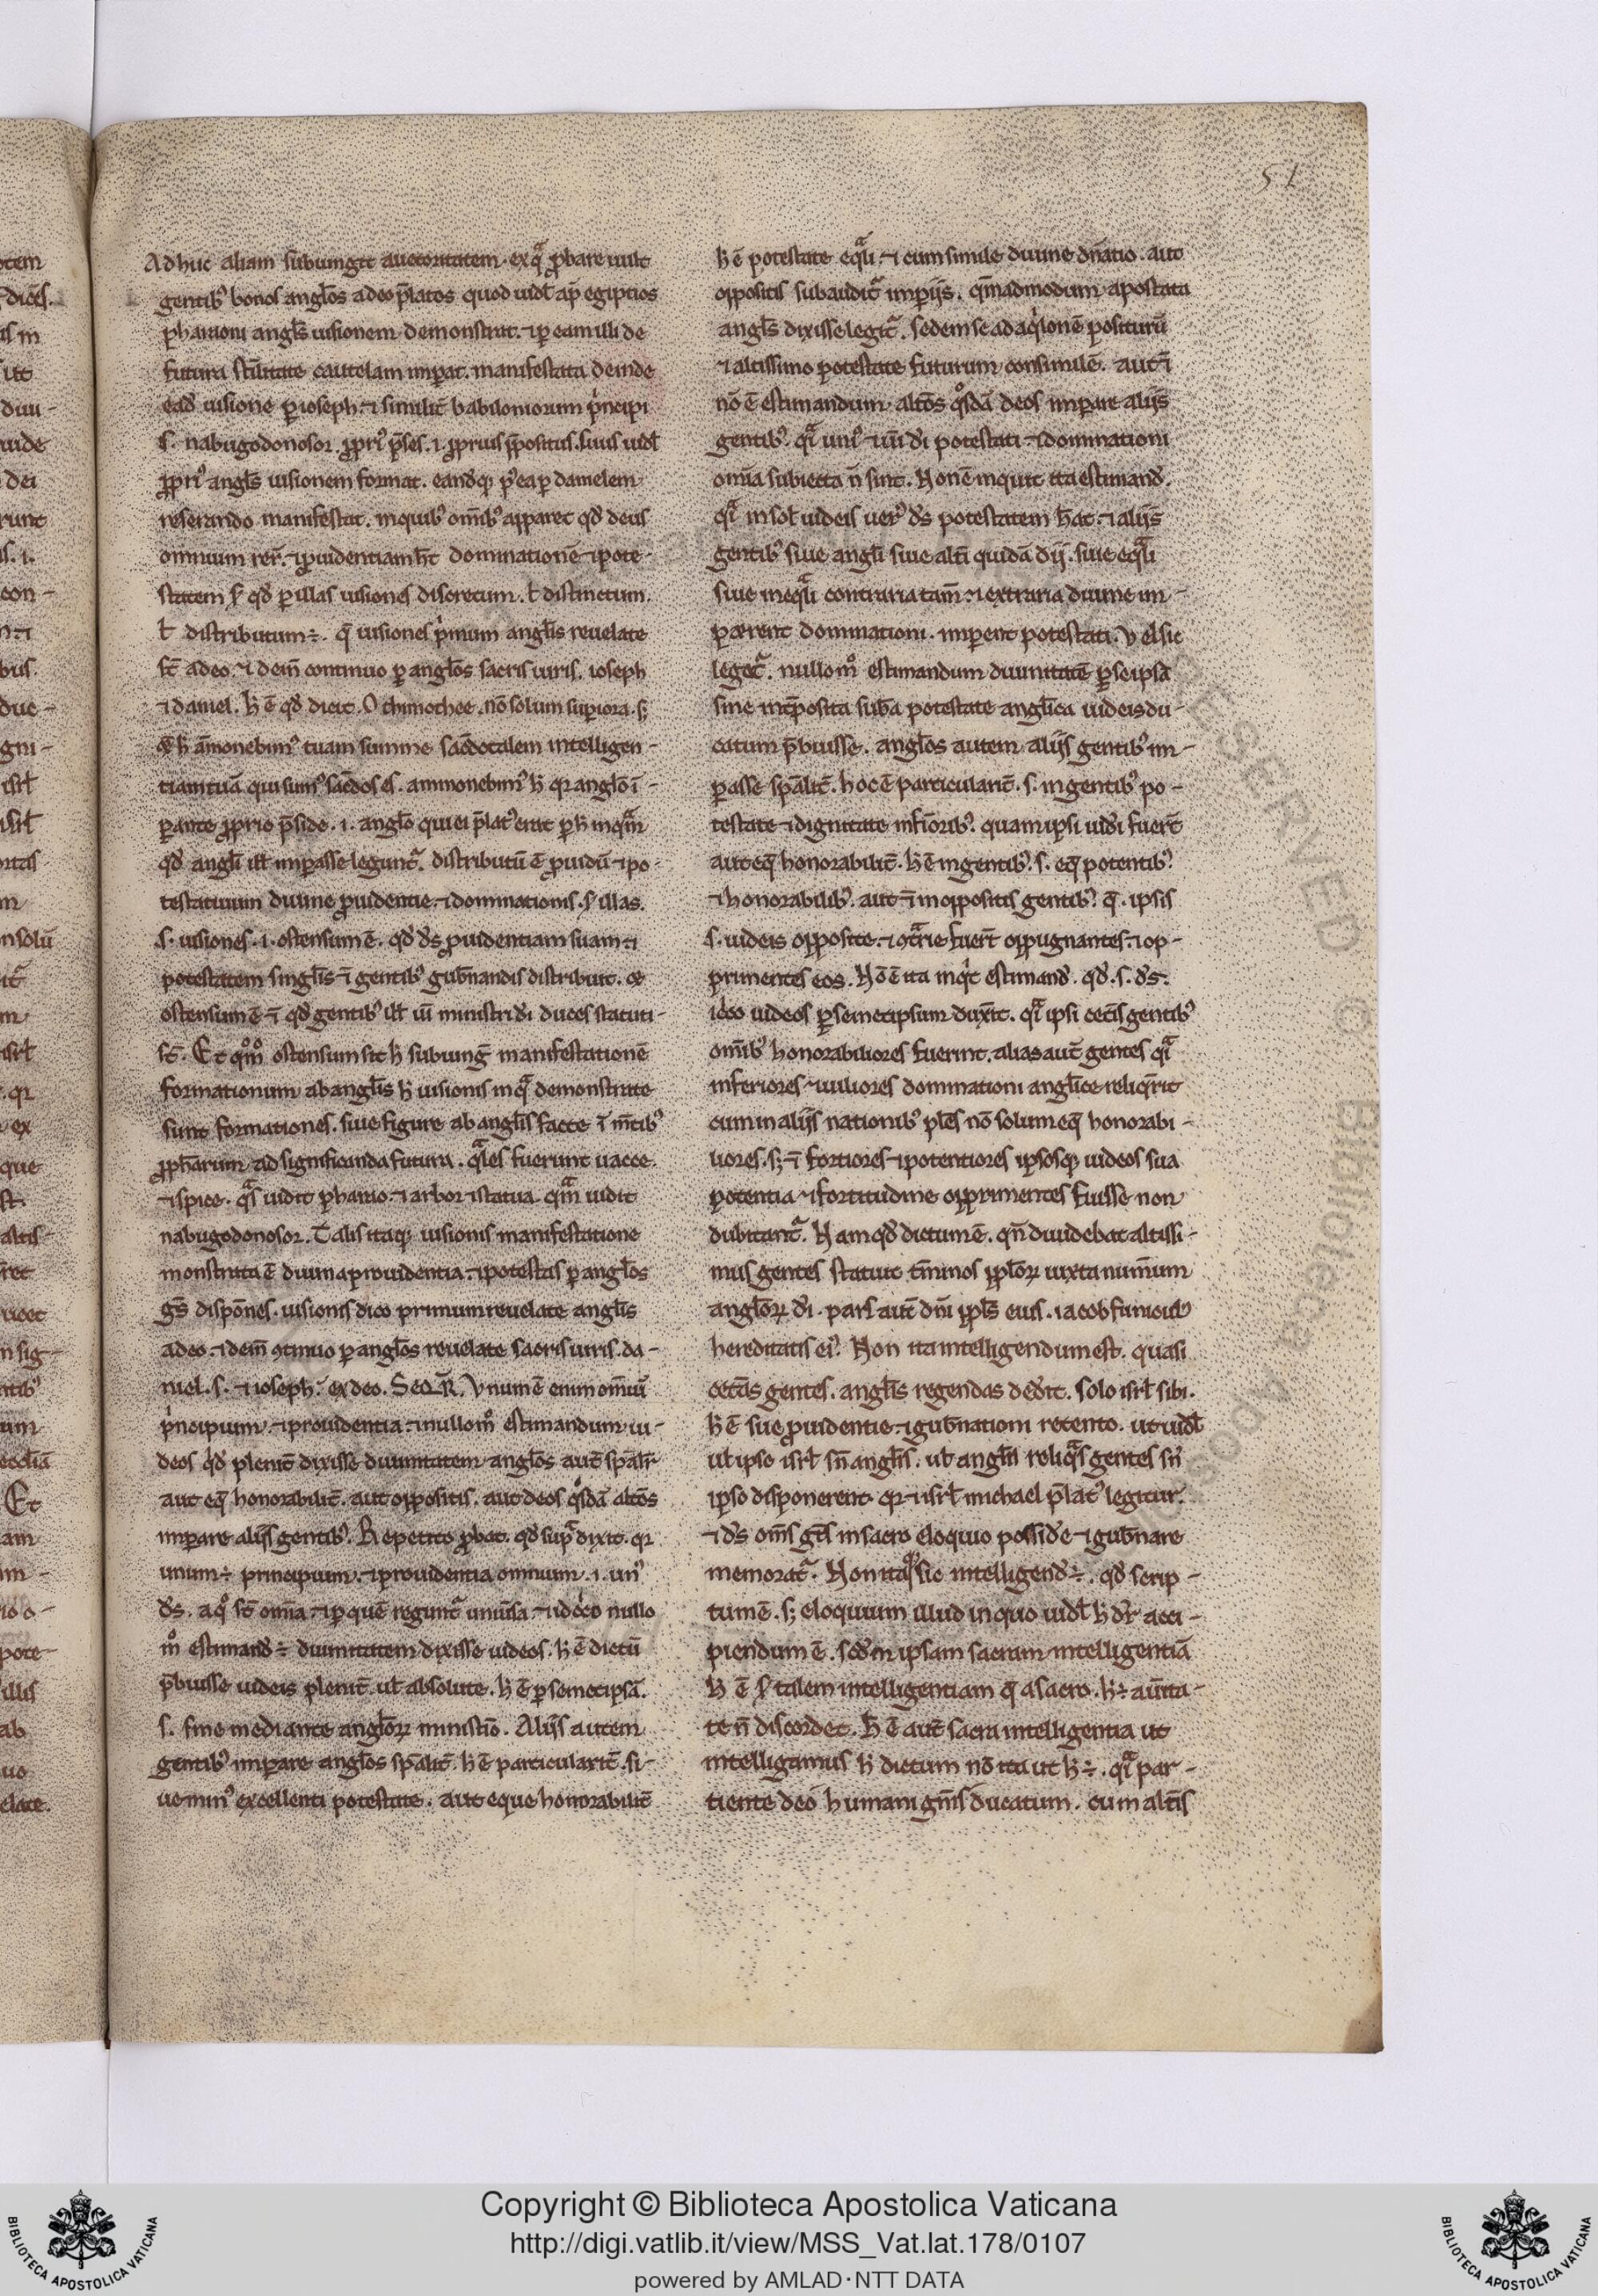 51
Adhuc aliam subiungit auctoritatem. ex qͣ ꝓbare uult
gentibꝰ bonos angl̄os adeo p̄latos quod uidꝫ ap̄ egiptios
pharaoni angl̄s uisionem demonstrat. ⁊ ꝑ eam illi de
futura st̄ilitate cautelam imꝑat. manifestata deinde
ead̄ uisione ꝑ ioseph. ⁊ similit̄ babiloniorum pͥncipi
.s. nabugodonosor. ꝓpriꝰ p̄ses .i. ꝓprius p̄positus. huius uidꝫ
ꝓpriꝰ angl̄s uisionem format. eandꝙ pꝰea ꝑ danielem
reserando manifestat. in quibꝰ om̄ibꝰ apparet qd̄ deus
omnium rer̄. ⁊ ꝓuidentiam h̄t dominationē ⁊ pote-
statem ẜ qd̄ ꝑ illas uisiones discretum. ł distinctum.
ł distributum ÷. q̄ uisiones pͥmum angl̄is reuelate
st̄ a deo. ⁊ dein̄ continuo ꝑ angl̄os sacris uiris. ioseph
⁊ daniel. h̄ ē qd̄ dicit. O thimothee. nō solum supiora. sꝫ
⁊ h̄ āmonebimꝰ tuam summe sacdotalem intelligen-
tiam tuā qui sumꝰ sacdos es. ammonebimꝰ h̄ qr anglo ī-
ꝑante ꝓprio p̄side .i. anglo qui ei p̄latꝰ erat ꝑ h̄ inqͣm
qd̄ angl̄i ill̄ imꝑasse leguntᷣ. distributū ē ꝓuidū ⁊ po-
testatiuum diuine ꝓuidentie. ⁊ dominationis. ẜ illas.
.s. uisiones .i. ostensum ē. qd̄ d̄s ꝓuidentiam suam. ⁊
potestatem singl̄is ⁊ gentibꝰ gub̄nandis distribuit. ⁊
ostensum ē ⁊ qd̄ gentibꝰ ill̄ uī ministri dī duces statuti-
st̄. Et qͦmͦ ostensum sit h̄ subiunḡ manifestationē
formationum ab angl̄is h̄ uisionis in qͣ demonstrate
sunt formationes. siue figure ab angl̄is facte ī m̄tibꝰ
ꝓph̄arum ad significanda futura. qͣles fuerunt uacce.
⁊ spice. qͣs uidit pharao. ⁊ arbor ⁊ statua. qͣm uidit
nabugodonosor. Talis itaꝗ uisionis manifestatione
monstrata ē diuina prouidentia. ⁊ potestas ꝑ angl̄os
gn̄s dispōnes. uisionis dico primum reuelate angl̄is
a deo. ⁊ dein̄ ꝯtinuo ꝑ angl̄os reuelate sacris uiris. da-
niel .s. ⁊ ioseph. ex deo. Unum ē enim om̄iū
pͥncipium. ⁊ prouidentia. ⁊ nullo mͦ estimandum iu-
deos qd̄ plenit̄ dixisse diuinitatem angl̄os aut̄ sp̄alit̄
aut eq̄ honorabilit̄. aut oppositis. aut deos qͦsdā alt̄os
imꝑare alijs gentibꝰ. Repetito ꝓbat. qd̄ supͣ dixit. qr
unum ÷ principium. ⁊ prouidentia omnium .i. unꝰ
d̄s. a qͦ st̄ om̄ia. ⁊ ꝑ quē reguntᷣ uniūsa. ⁊ idc̄o nullo
mͦ estimand̄ ÷ diuinitatem dixisse iudeos. h̄ ē dictū
p̄buisse iudeis plenit̄. uł absolute. h̄ ē ꝑ semetipsā.
.s. sine mediante angl̄oꝝ minist̄io. Alijs autem
gentibꝰ imꝑare angl̄os sp̄alit̄. h̄ ē particularit̄. si-
ue minꝰ excellenti potestate. aut eque honorabilit̄
h̄ ē potestate eqͣli. ⁊ cum simile diuine dn̄atio. aut
oppositis subauditᷣ imꝑijs. q̄madmodum apostata
angl̄s dixisse legitᷣ. sedem se ad aqͥlonē positurū
⁊ altissimo potestate futurum consimilē. aut ⁊
nō ē estimandum alt̄os qͦsdā deos imꝑare alijs
gentibꝰ. qͣi uniꝰ ⁊ uī dī potestati. ⁊ dominationi
om̄ia subiecta n̄ sint. Non ē inquit ita estimand̄.
qͣi in sol̄ iudeis uerꝰ d̄s potestatem h̄at. ⁊ alijs
gentibꝰ siue angl̄i siue alt̄i quidā dij. siue eqͣli
siue ineqͣli contraria tam̄. ⁊ extraria diuine im-
ꝑarent dominationi. imꝑent potestati. Vel sic
legetᷣ. nullo mͦ estimandum diuinitatē ꝑ se ipsā
sine int̄posita sub̄a potestate angl̄ica iudeis du-
catum p̄buisse. angl̄os autem alijs gentibꝰ im-
ꝑasse sp̄alit̄. hoc ē particularit̄ .s. in gentibꝰ po-
testate ⁊ dignitate inf̄ioribꝰ. quam ipsi iudī fuert̄
aut eq̄ honorabilit̄. h̄ ē in gentibꝰ .s. eq̄ potentibꝰ.
⁊ honorabilibꝰ. aut ⁊ in oppositis gentibꝰ. q̄. ipsis
.s. iudeis opposite. ⁊ ꝯtͣrie fuert̄ oppugnantes. ⁊ op-
primentes eos. Nō ē ita inqͥt estimand̄. qd̄ .s. d̄s.
idc̄o iudeos ꝑ semetipsum duxit̄. qͣi ipsi cet̄is gentibꝰ
om̄ibꝰ honorabiliores fuerint. alias aut̄ gentes qͣi
inferiores ⁊ uiliores dominationi angl̄ice reliqͥrit
cum in alijs nationibꝰ pl̄es nō solum eq̄ honorabi-
liores. sꝫ ⁊ fortiores ⁊ potentiores ipsosꝙ iudeos sua
potentia ⁊ fortitudine opprimentes fuisse non
dubitantᷣ. Nam qd̄ dictum ē. qn̄ diuidebat altissi-
mus gentes statuit t̄minos ppl̄oꝝ iuxta num̄um
angl̄oꝝ dī. pars aut̄ dn̄i ppl̄s eius. iacob funiculꝰ
hereditatis eiꝰ. Non ita intelligendum est. quasi
cet̄as gentes. angl̄is regendas ded̄it. solo isrl̄ sibi.
h̄ ē sue ꝓuidentie. ⁊ gub̄nationi retento. ut uidꝫ
uł ipso isrl̄ sn̄ angl̄is. uł angl̄i reliqͣs gentes sn̄
ipso disponerent qr ⁊ isrl̄ michael p̄latꝰ legitur.
⁊ d̄s om̄s gn̄s in sacro eloquio possid̄e ⁊ gub̄nare
memoratᷣ. Non itaꝗ sic intelligend̄ ÷. qd̄ scrip-
tum ē. sꝫ eloquium illud in quo uidꝫ h̄ d̄r acci-
piendum ē. scd̄m ipsam sacram intelligentiā
h̄ ē ẜ talem intelligentiam q̄ a sacro. h̄ ÷ aūita-
te n̄ discordet. h̄ ē aut̄ sacra intelligentia ut
intelligamus h̄ dictum nō ita ut h̄ ÷. qͣi par-
tiente deo humani gn̄is ducatum. cum alt̄is
Copyright © Biblioteca Apostolica Vaticana
http://digi.vatlib.it/view/MSS_Vat.lat.178/0107
powered by AMLAD·NTT DATA
BIBLIOTECA APOSTOLICA VATICANA
BIBLIOTECA APOSTOLICA VATICANA